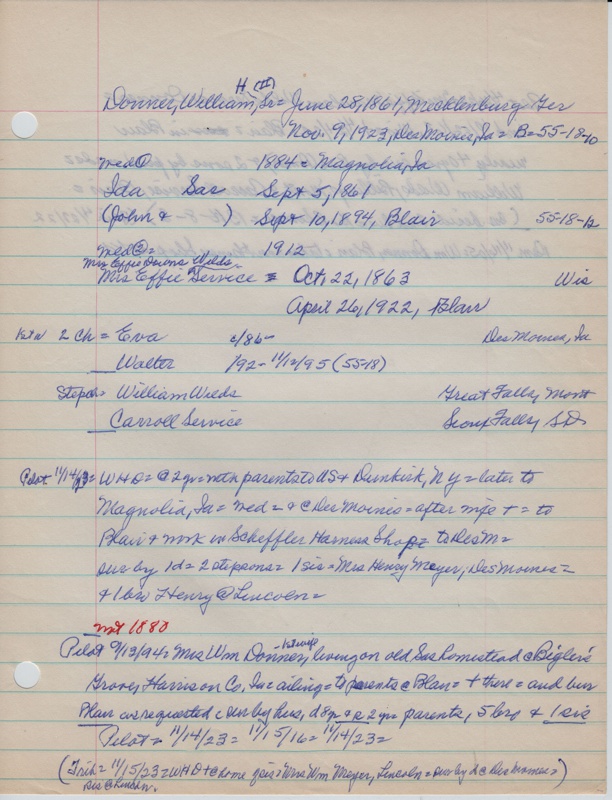 H (II)
Donner, William, Sr = June 28, 1861, Mecklenburg Ger
Nov. 9, 1923, Des Moines, Ia = B=55-18-10
med① 1884 = Magnolia, Ia
Ida Sas Sept 5, 1861
(John & ) = Sept 10, 1894, Blair 55-18-12
med②= 1912
Mrs Effie Downs Wilds
Mrs Effie Service = Oct. 22, 1863 Wis
April 26, 1922, Blair
2 Ch = Eva c/86- Des Moines, Ia
Walter /92- 11/12/95 (55-18)
Stepch= William Wilds Great Falls, Mont
Carroll Service Sioux Falls, SD
Pilot 11/14/23= WHD = @ 2 yr = with parents to US & Dunkirk, NY = later to
Magnolia, Ia = med = + @ Des Moines = after mge + = to
Blair & work in Scheffler Harness Shop = to Des M =
sur by 1d = 2 stepsons = 1 sis = Mrs Henry Meyer, Des Moines =
& 1 bro Henry @ Lincoln =
not 1880
Pilot 9/13/94 = Mrs Wm Donner, living on old Sas homestead @ Bigler's
Grove, Harrison Co, Ia = ailing = to parents @ Blair = + there = and bur
Blair as requested = sur by hus, d 8 yr & s 2 yr = parents, 5 bro & 1 sis
Pilot = 11/14/23 = 11/15/16 = 11/14/23 =
(Trib = 11/15/23 = WHD + @ home sis = Mrs Wm Meyer, Lincoln = sur by @ Des Moines =)
sis @ Lincoln.